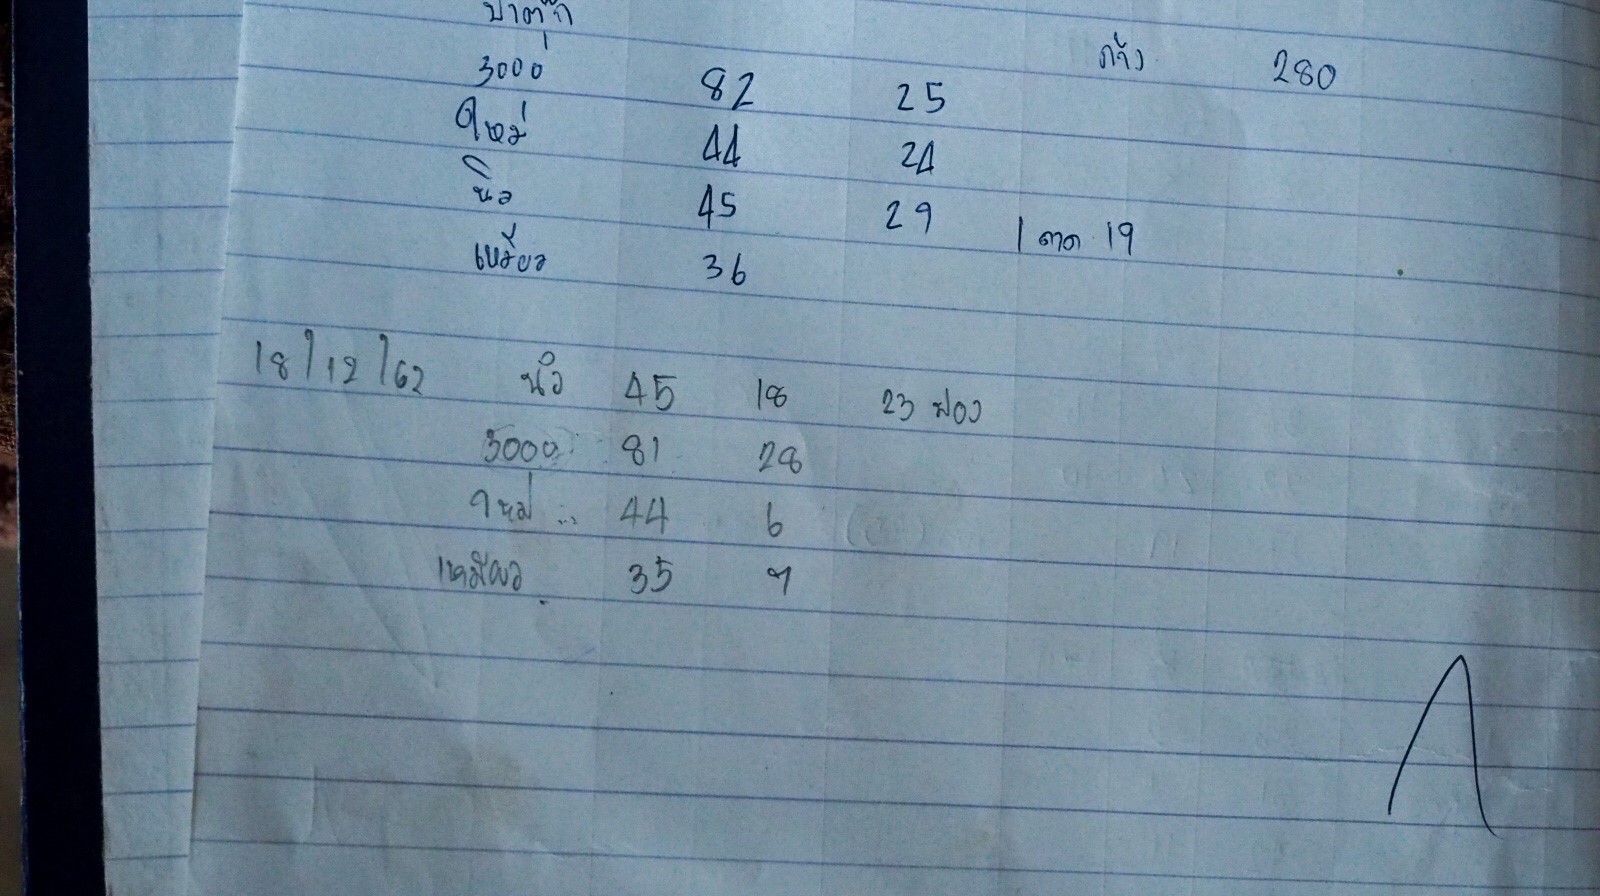 ป้าตุ๊ก
ค้าง 280
3000 82 25
ใหม่ 44 24
นิว 45 29 1 ถาด 19
เหลียว 36
18/12/62 นิว 45 18 23 ฟอง
3000 81 28
ใหม่ 44 6
35 7